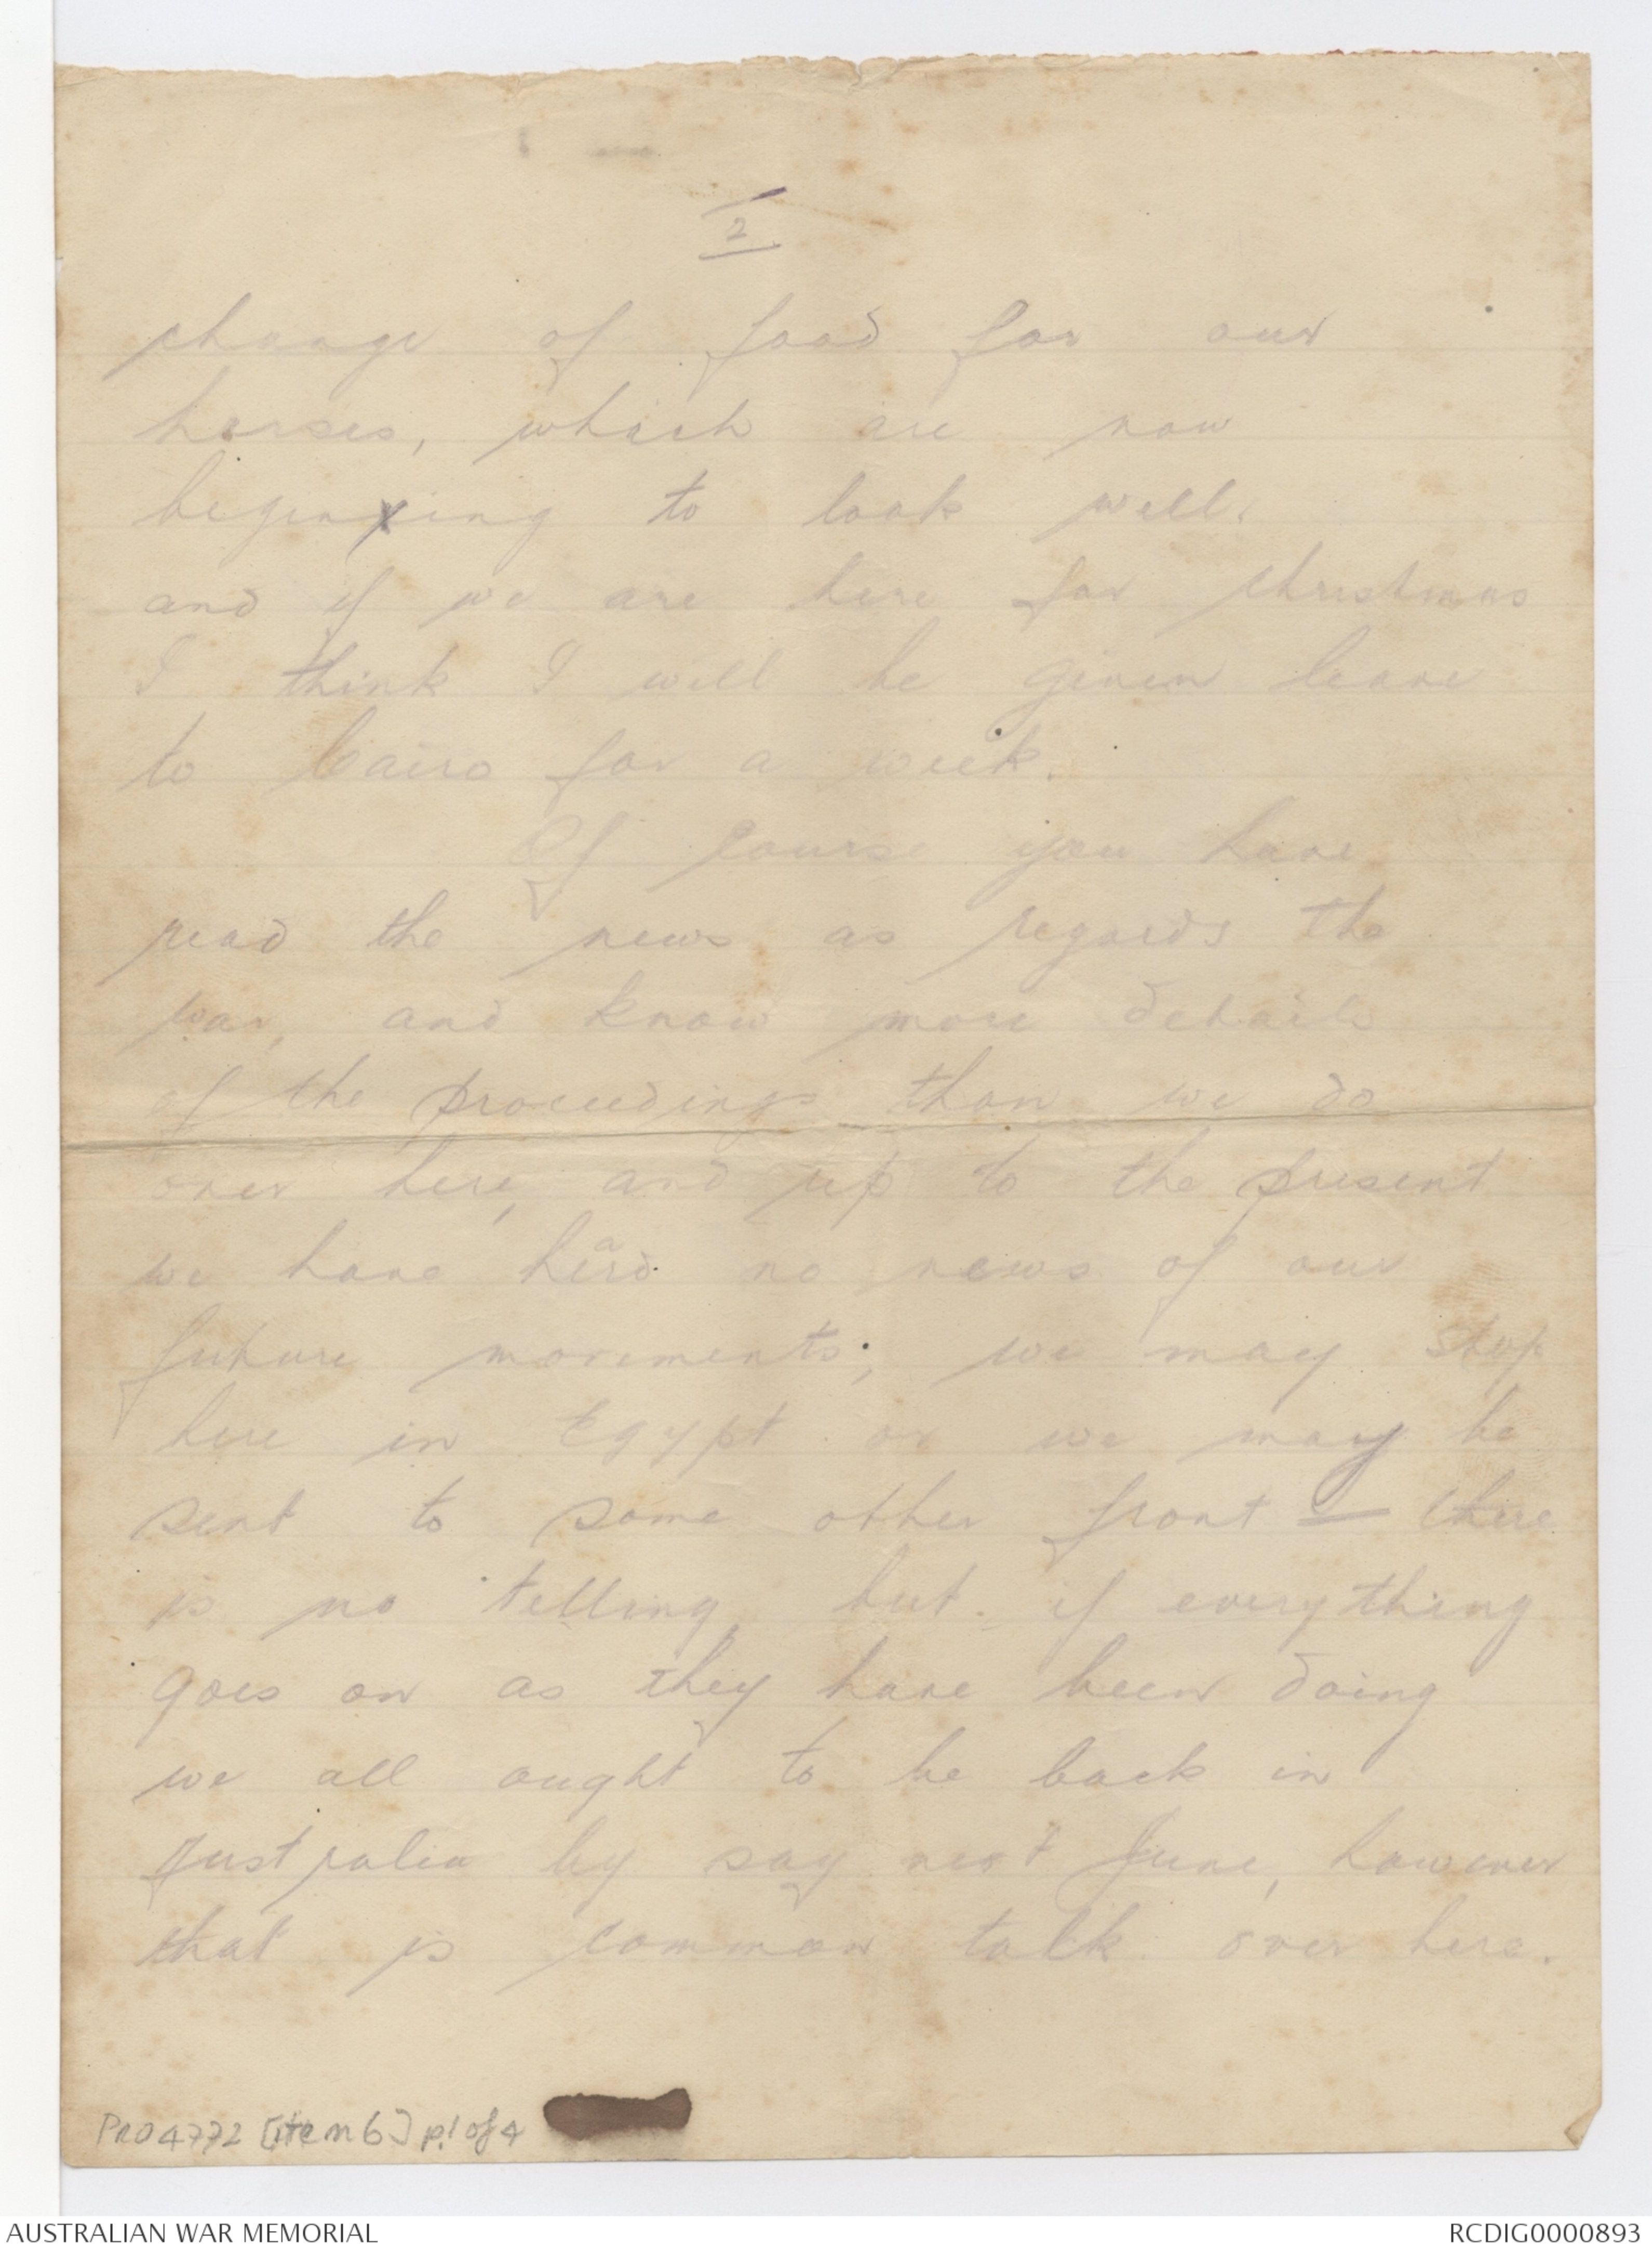 2
change of food for our
horses, which are now
begining to look well.
and if we are here for christmas
I think I will be given leave
to Cairo for a week.
Of course you have
read the news as regards the
war, and know more details
of the proceedings than we do
over here, and up to the present
we have heard no news of our
future movements; we may stop
here in Egypt or we may be
sent to some other front - there
is no telling, but if everything
goes on as they have been doing
we all ought to be back in
Australia by say next June, however
that is common talk over here.
PR04772 [item 6] p1 of 4
AUSTRALIAN WAR MEMORIAL
RCDIG0000893